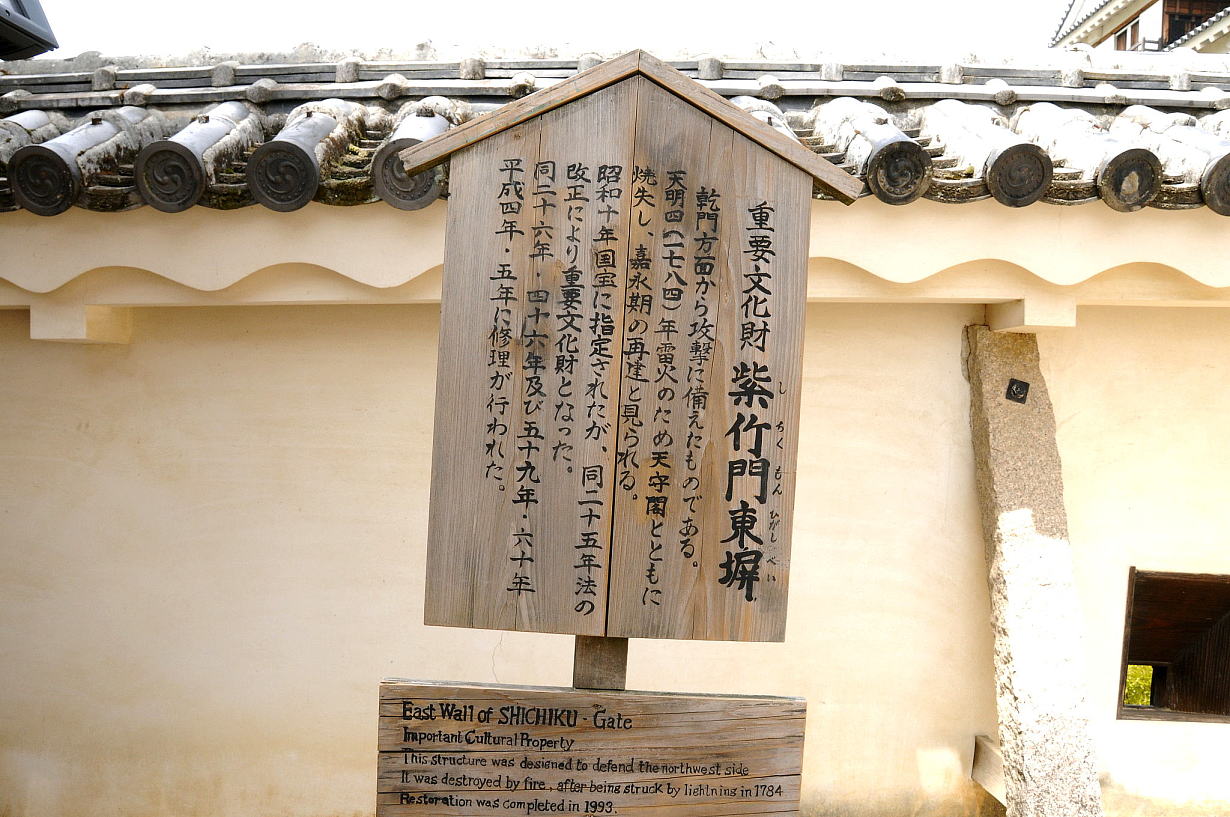 重要文化財 紫竹門東塀
し ちく もん ひがし べい
乾門方面から攻撃に備えたものである。
天明四(一七八四)年雷火のため天守閣とともに
焼失し、嘉永期の再建と見られる。
昭和十年国宝に指定されたが、同二十五年法の
改正により重要文化財となった。
同二十六年・四十六年及び五十九年・六十年
平成四年・五年に修理が行われた。
East Wall of SHICHIKU - Gate
Important Cultural Property
This structure was designed to defend the northwest side
It was destroyed by fire, after being struck by lightning in 1784
Restoration was completed in 1993.